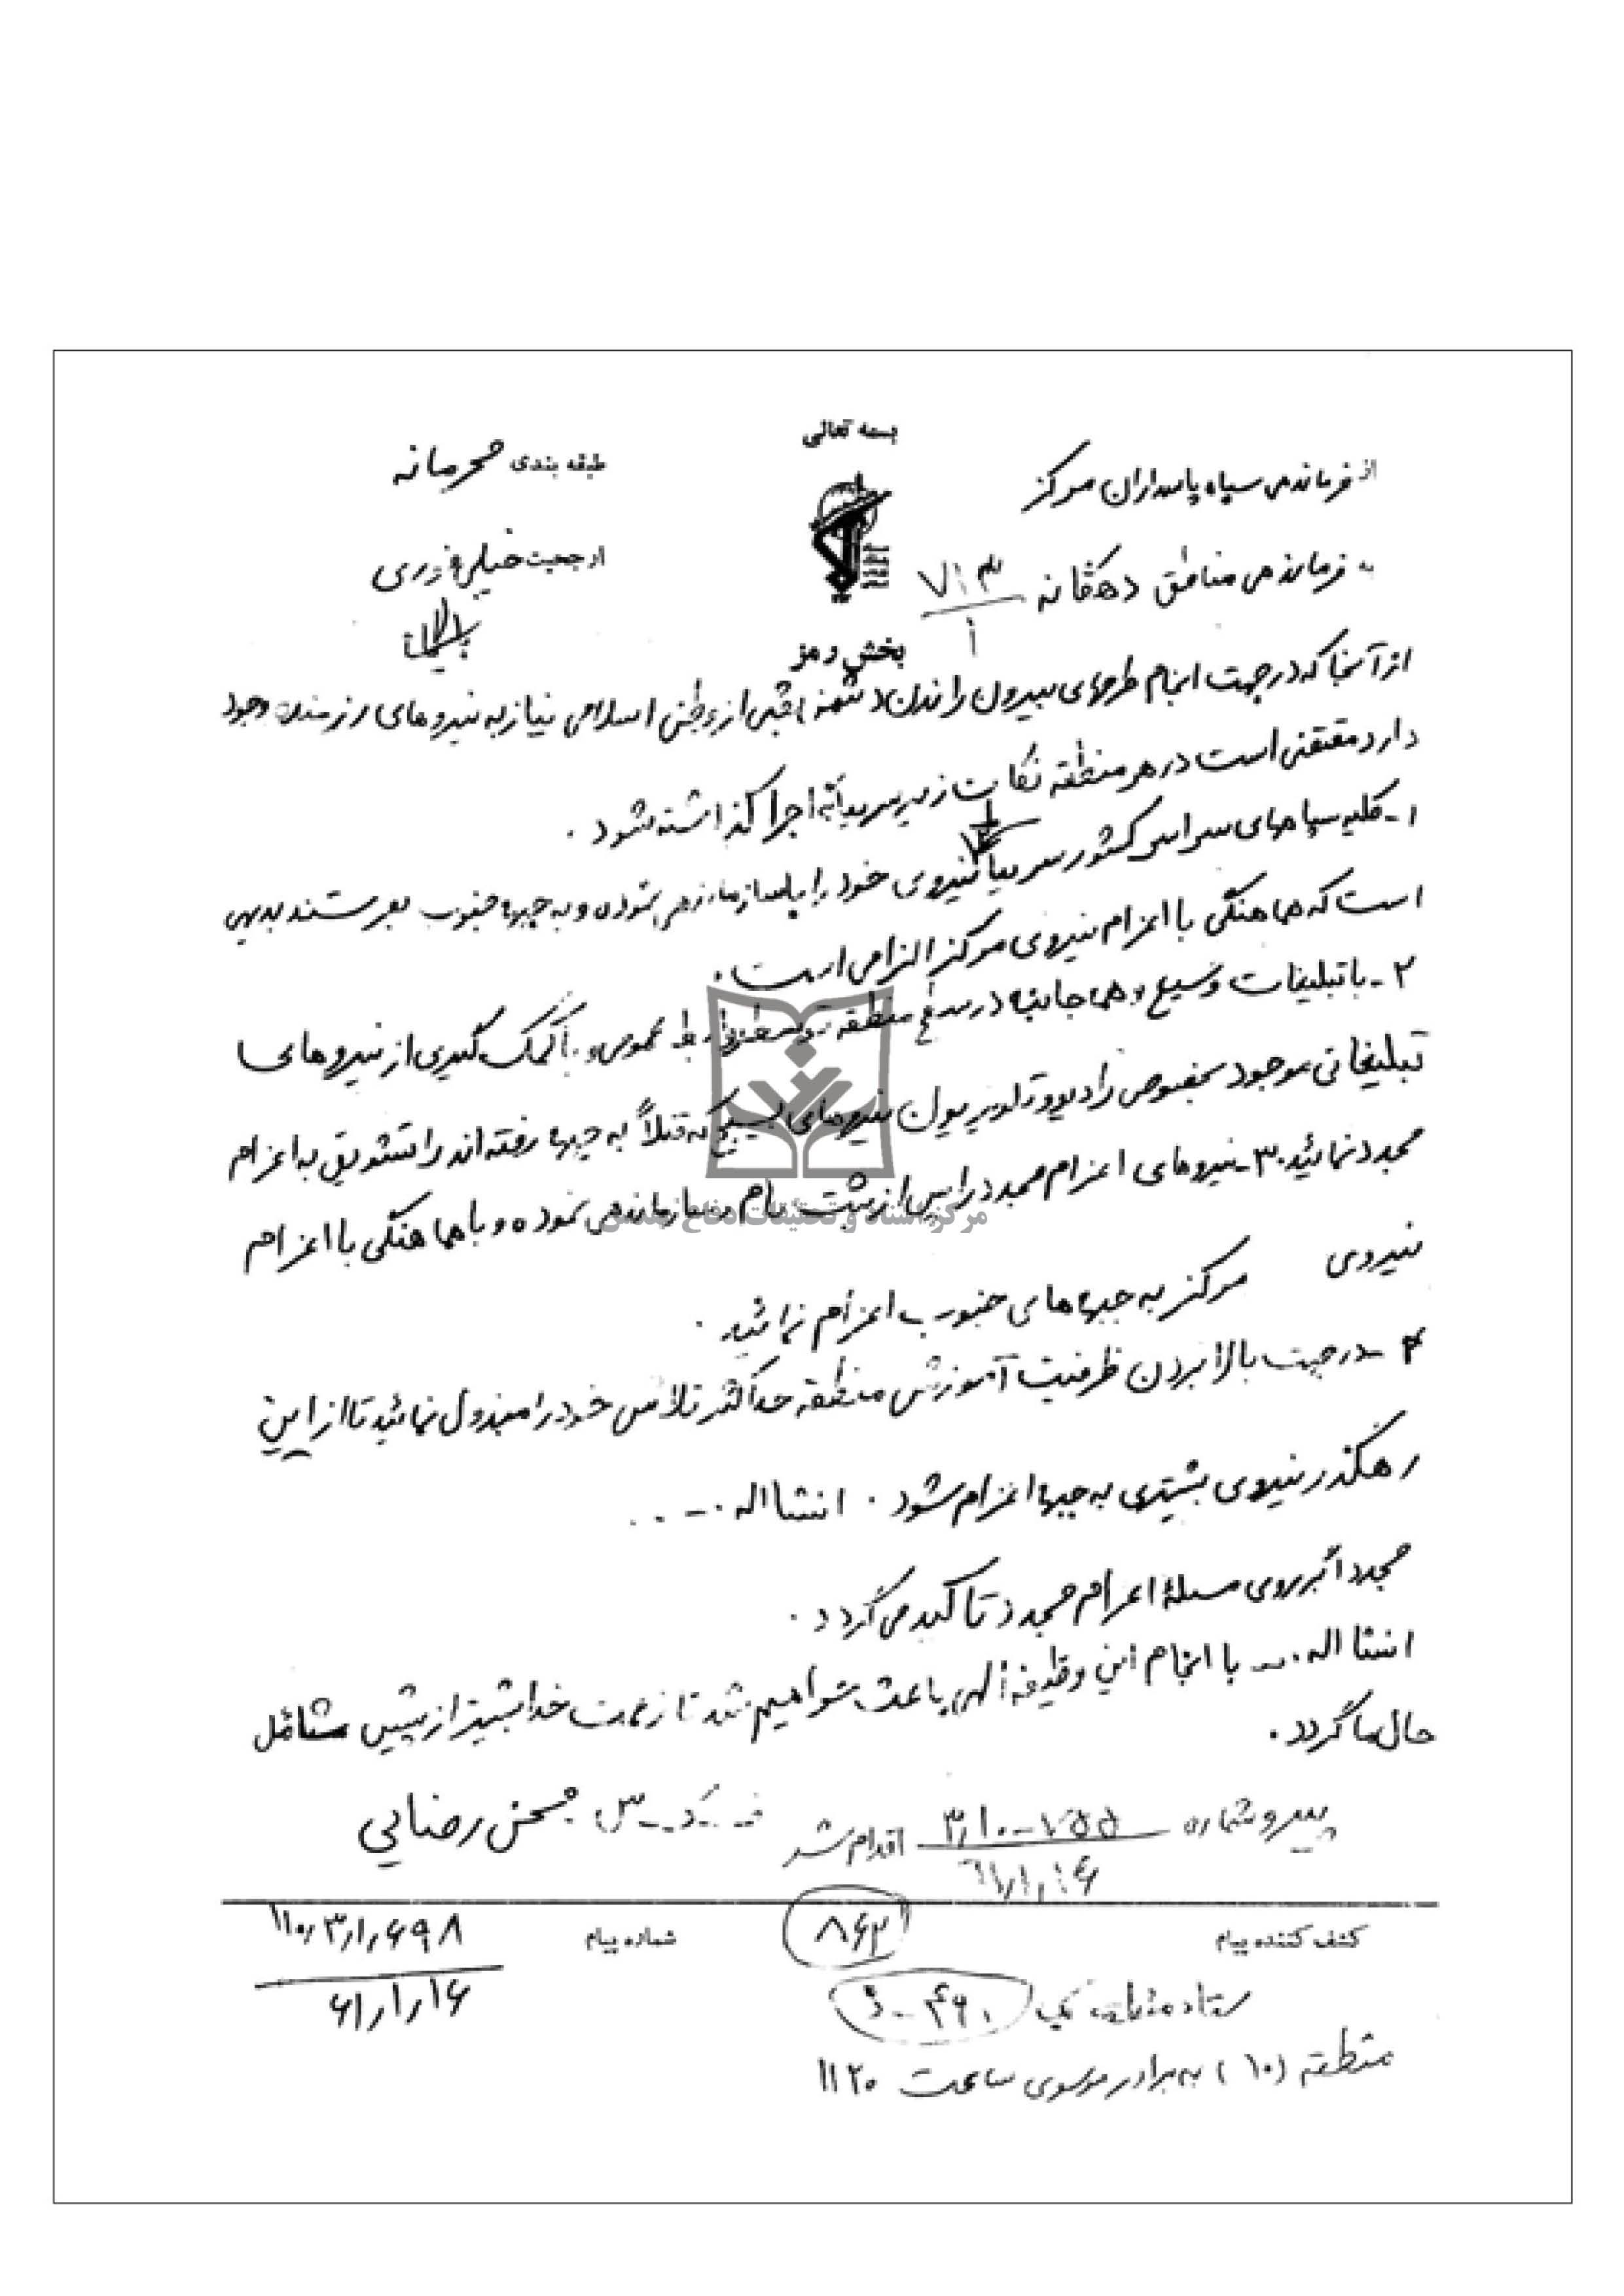 بسمه تعالی
از فرماندهی سپاه پاسداران مرکز
طبقه بندی محرمانه
به فرماندهی مناطق دهگانه ۷۱۳
ارجحیت خیلی فوری
بخش رمز
از آنجا که در جهت انجام طرحهای بیرون راندن دشمن بعثی از وطن اسلامی نیاز به نیروهای رزمنده وجود
دارد مقتضی است در هر منطقه نکات زیر سریعاً به اجرا گذاشته شود .
۱- کلیه سپاههای سراسر کشور سریعاً نیروی خود را سازماندهی نموده و به جبهه جنوب بفرستند بدیهی
است که هماهنگی با اعزام نیروی مرکز الزامی است .
۲- با تبلیغات وسیع و همه جانبه در سطح منطقه توسط روابط عمومی و با کمک گیری از نیروهای
تبلیغاتی موجود بخصوص رادیو و تلویزیون نیروهای بسیج که قبلاً به جبهه رفته اند را تشویق به اعزام
مجدد نمائید ۳- نیروهای اعزام مجدد را پس از ثبت نام سازماندهی نموده و با هماهنگی با اعزام
نیروی مرکز به جبهه های جنوب اعزام نمائید .
۴- در جهت بالا بردن ظرفیت آموزش منطقه حداکثر تلاش خود را مبذول نمائید تا از این
رهگذر نیروی بیشتری به جبهه اعزام شود . انشااله ...
مجدداً بر روی مسئله اعزام مجدد تاکید می گردد .
انشااله ... با انجام این وظیفه الهی باعث خواهیم شد تا رحمت خدا بیشتر از پیش شامل
حال ما گردد .
پیرو شماره ۷۵۵-۳٫۱۰ اقدام شد
محسن رضایی
۶۱٫۱٫۱۶
کشف کننده پیام
۸۶۲
شماره پیام ۱۱۰٫۳٫۱٫۶۹۸
۶۱٫۱٫۱۶
ستاد
منطقه (۱۰) به برادر موسوی ساعت ۱۱۲۰
مرکز اسناد و تحقیقات دفاع مقدس